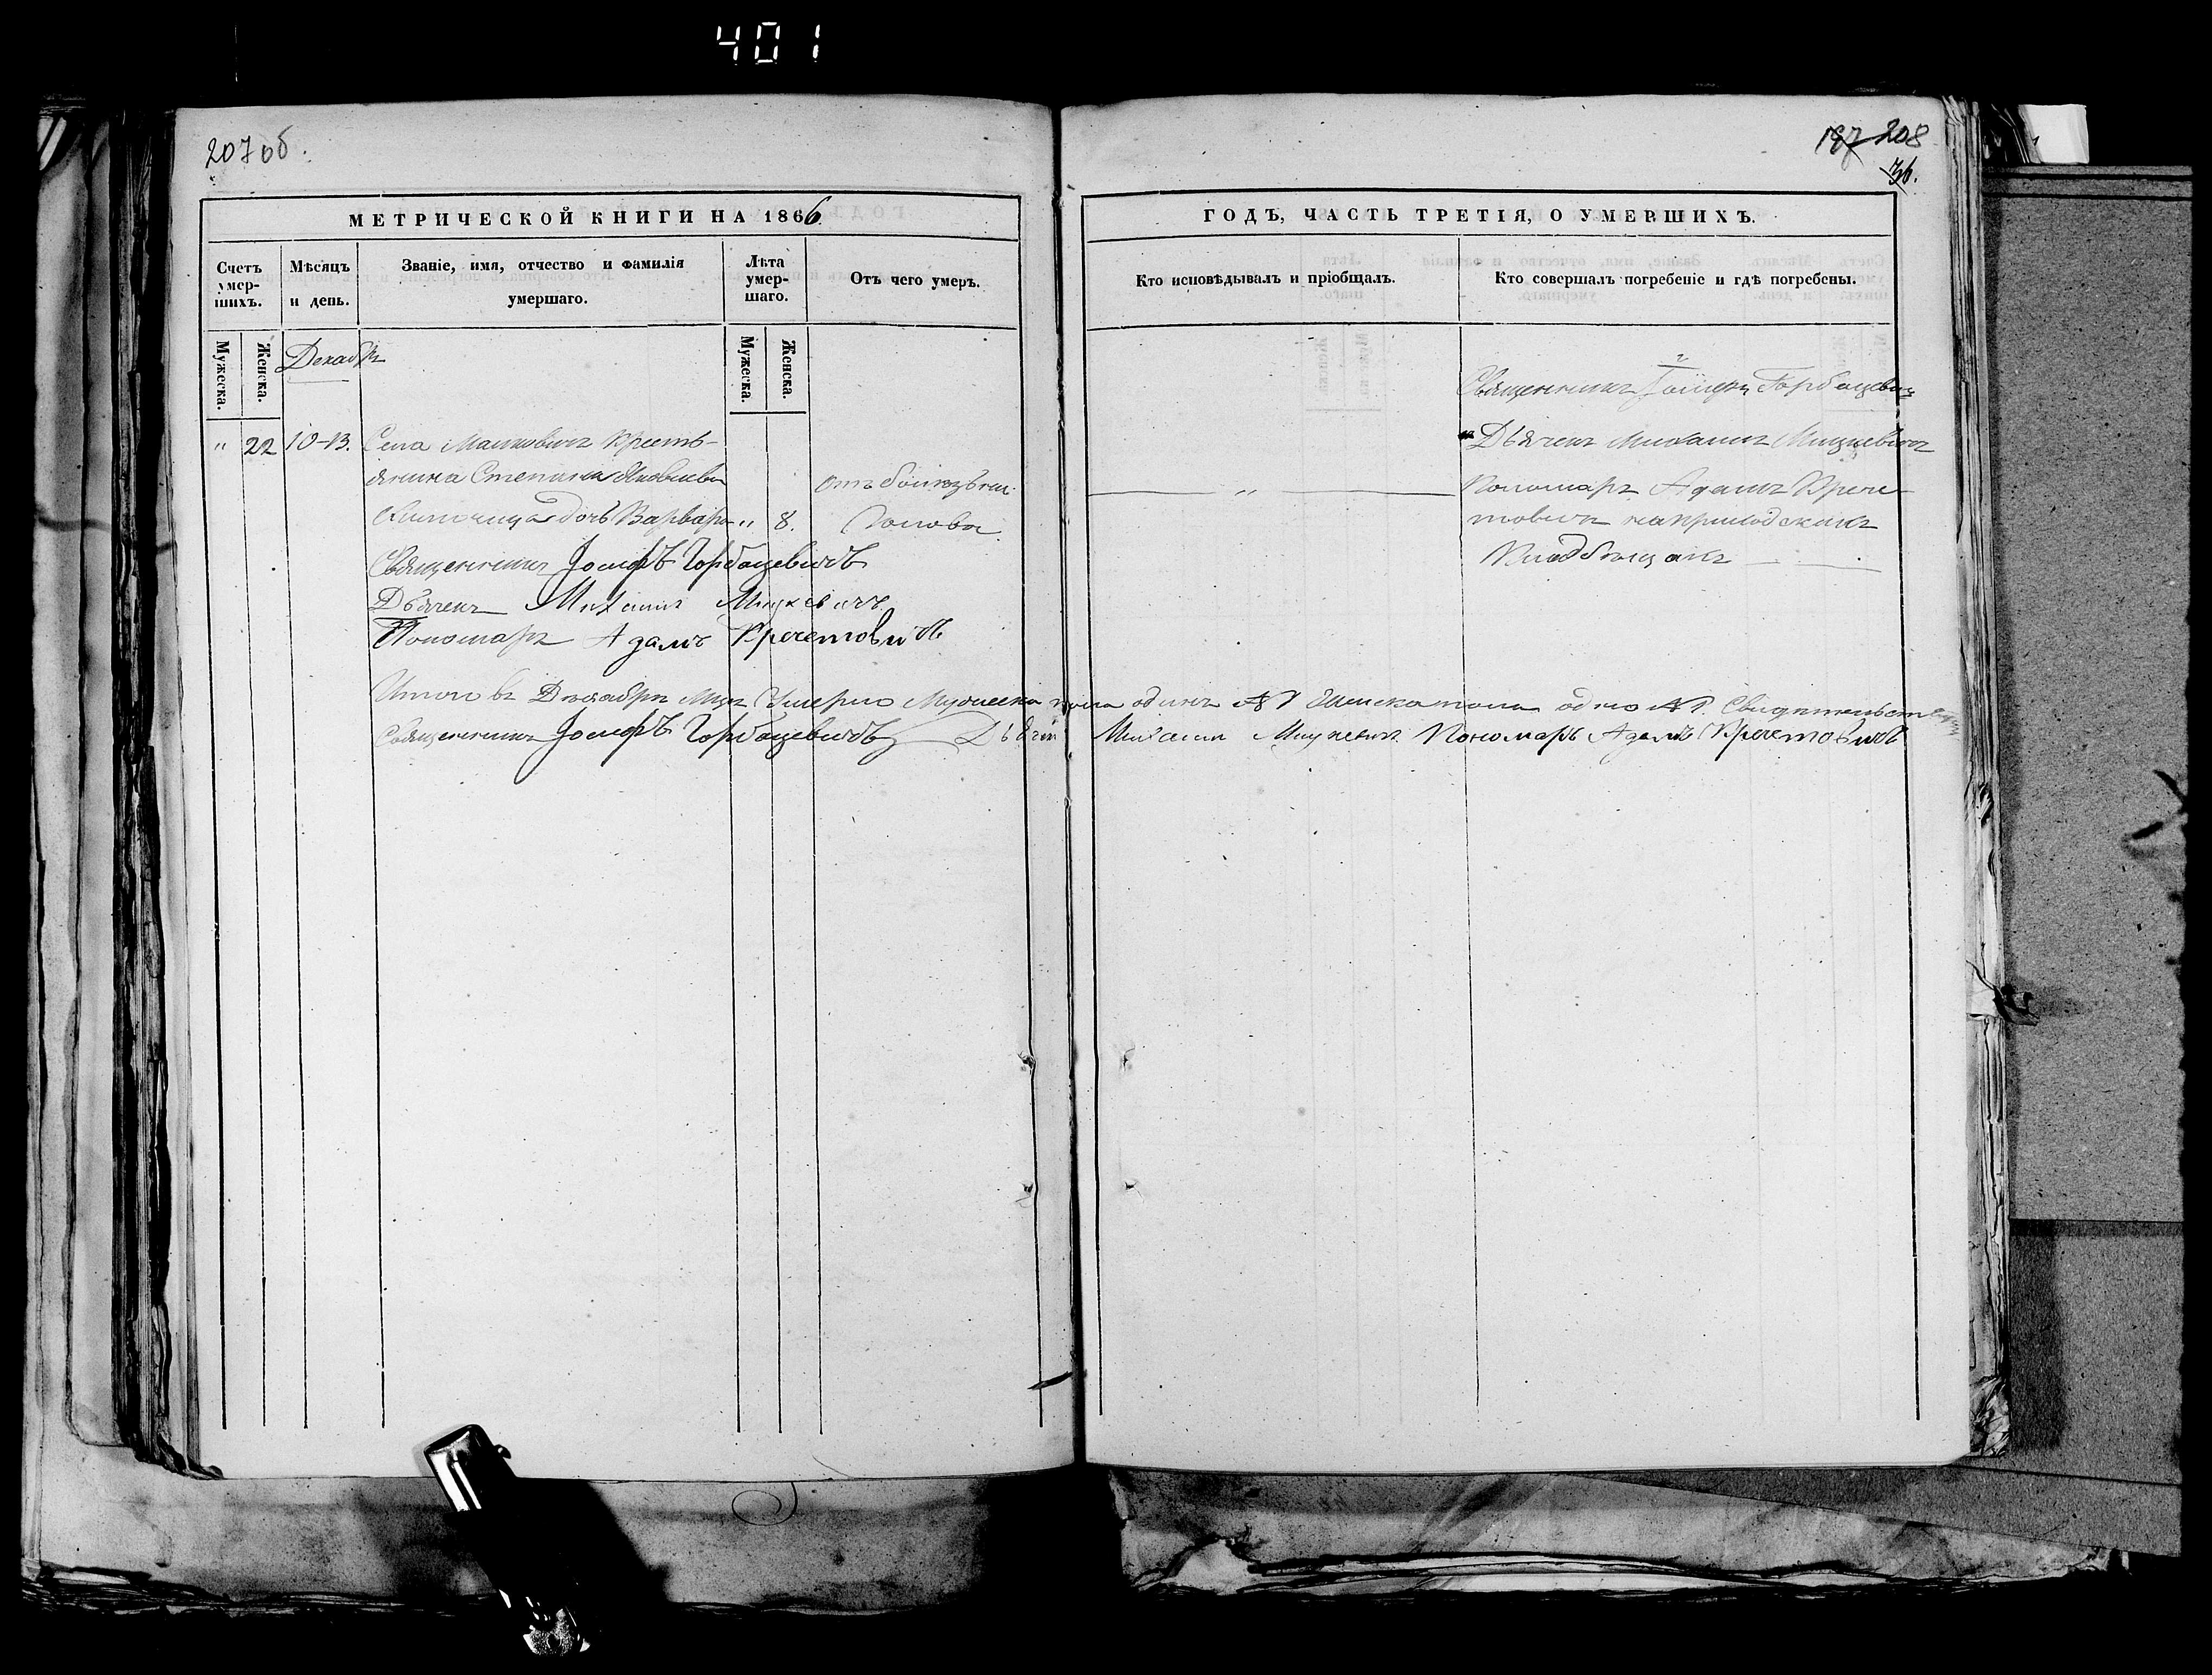 401
207 об.
МЕТРИЧЕСКОЙ КНИГИ НА 1866
Счетъ умершихъ.
Мѣсяцъ и день.
Званіе, имя, отчество и фамилія умершаго.
Лѣта умершаго.
Отъ чего умеръ.
Мужеска.
Женска.
Мужеска.
Женска.
Декабрь
" 22 10-13. Села Малковичъ Кресть-
янина Степана Яковлева
дочь Варвара " 8.
отъ болѣзни
Голова
Священникъ Іосифъ Горбацевичъ
Дьячекъ Михаилъ Мицкевичъ
Пономарь Адамъ Кречетовичъ
197 208
36.
ГОДЪ, ЧАСТЬ ТРЕТІЯ, О УМЕРШИХЪ.
Кто исповѣдывалъ и пріобщалъ.
Кто совершалъ погребеніе и гдѣ погребены.
"
Священникъ Іосифъ Горбацевичъ
Дьячекъ Михаилъ Мицкевичъ
Пономарь Адамъ Крече-
товичъ на приходскихъ
Кладбищахъ
Итого въ Декабрѣ Мцѣ Умерло Мужеска пола одинъ № 1 Женска пола одно № 1.
Священникъ Іосифъ Горбацевичъ Дьячекъ Михаилъ Мицкевичъ Пономарь Адамъ Кречетовичъ